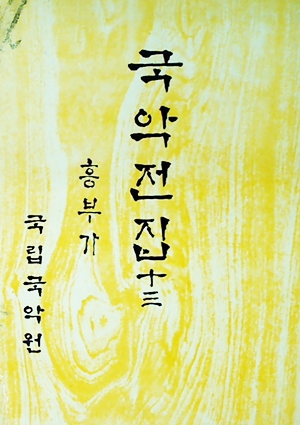 국악전집 十三
흥부가
국립국악원